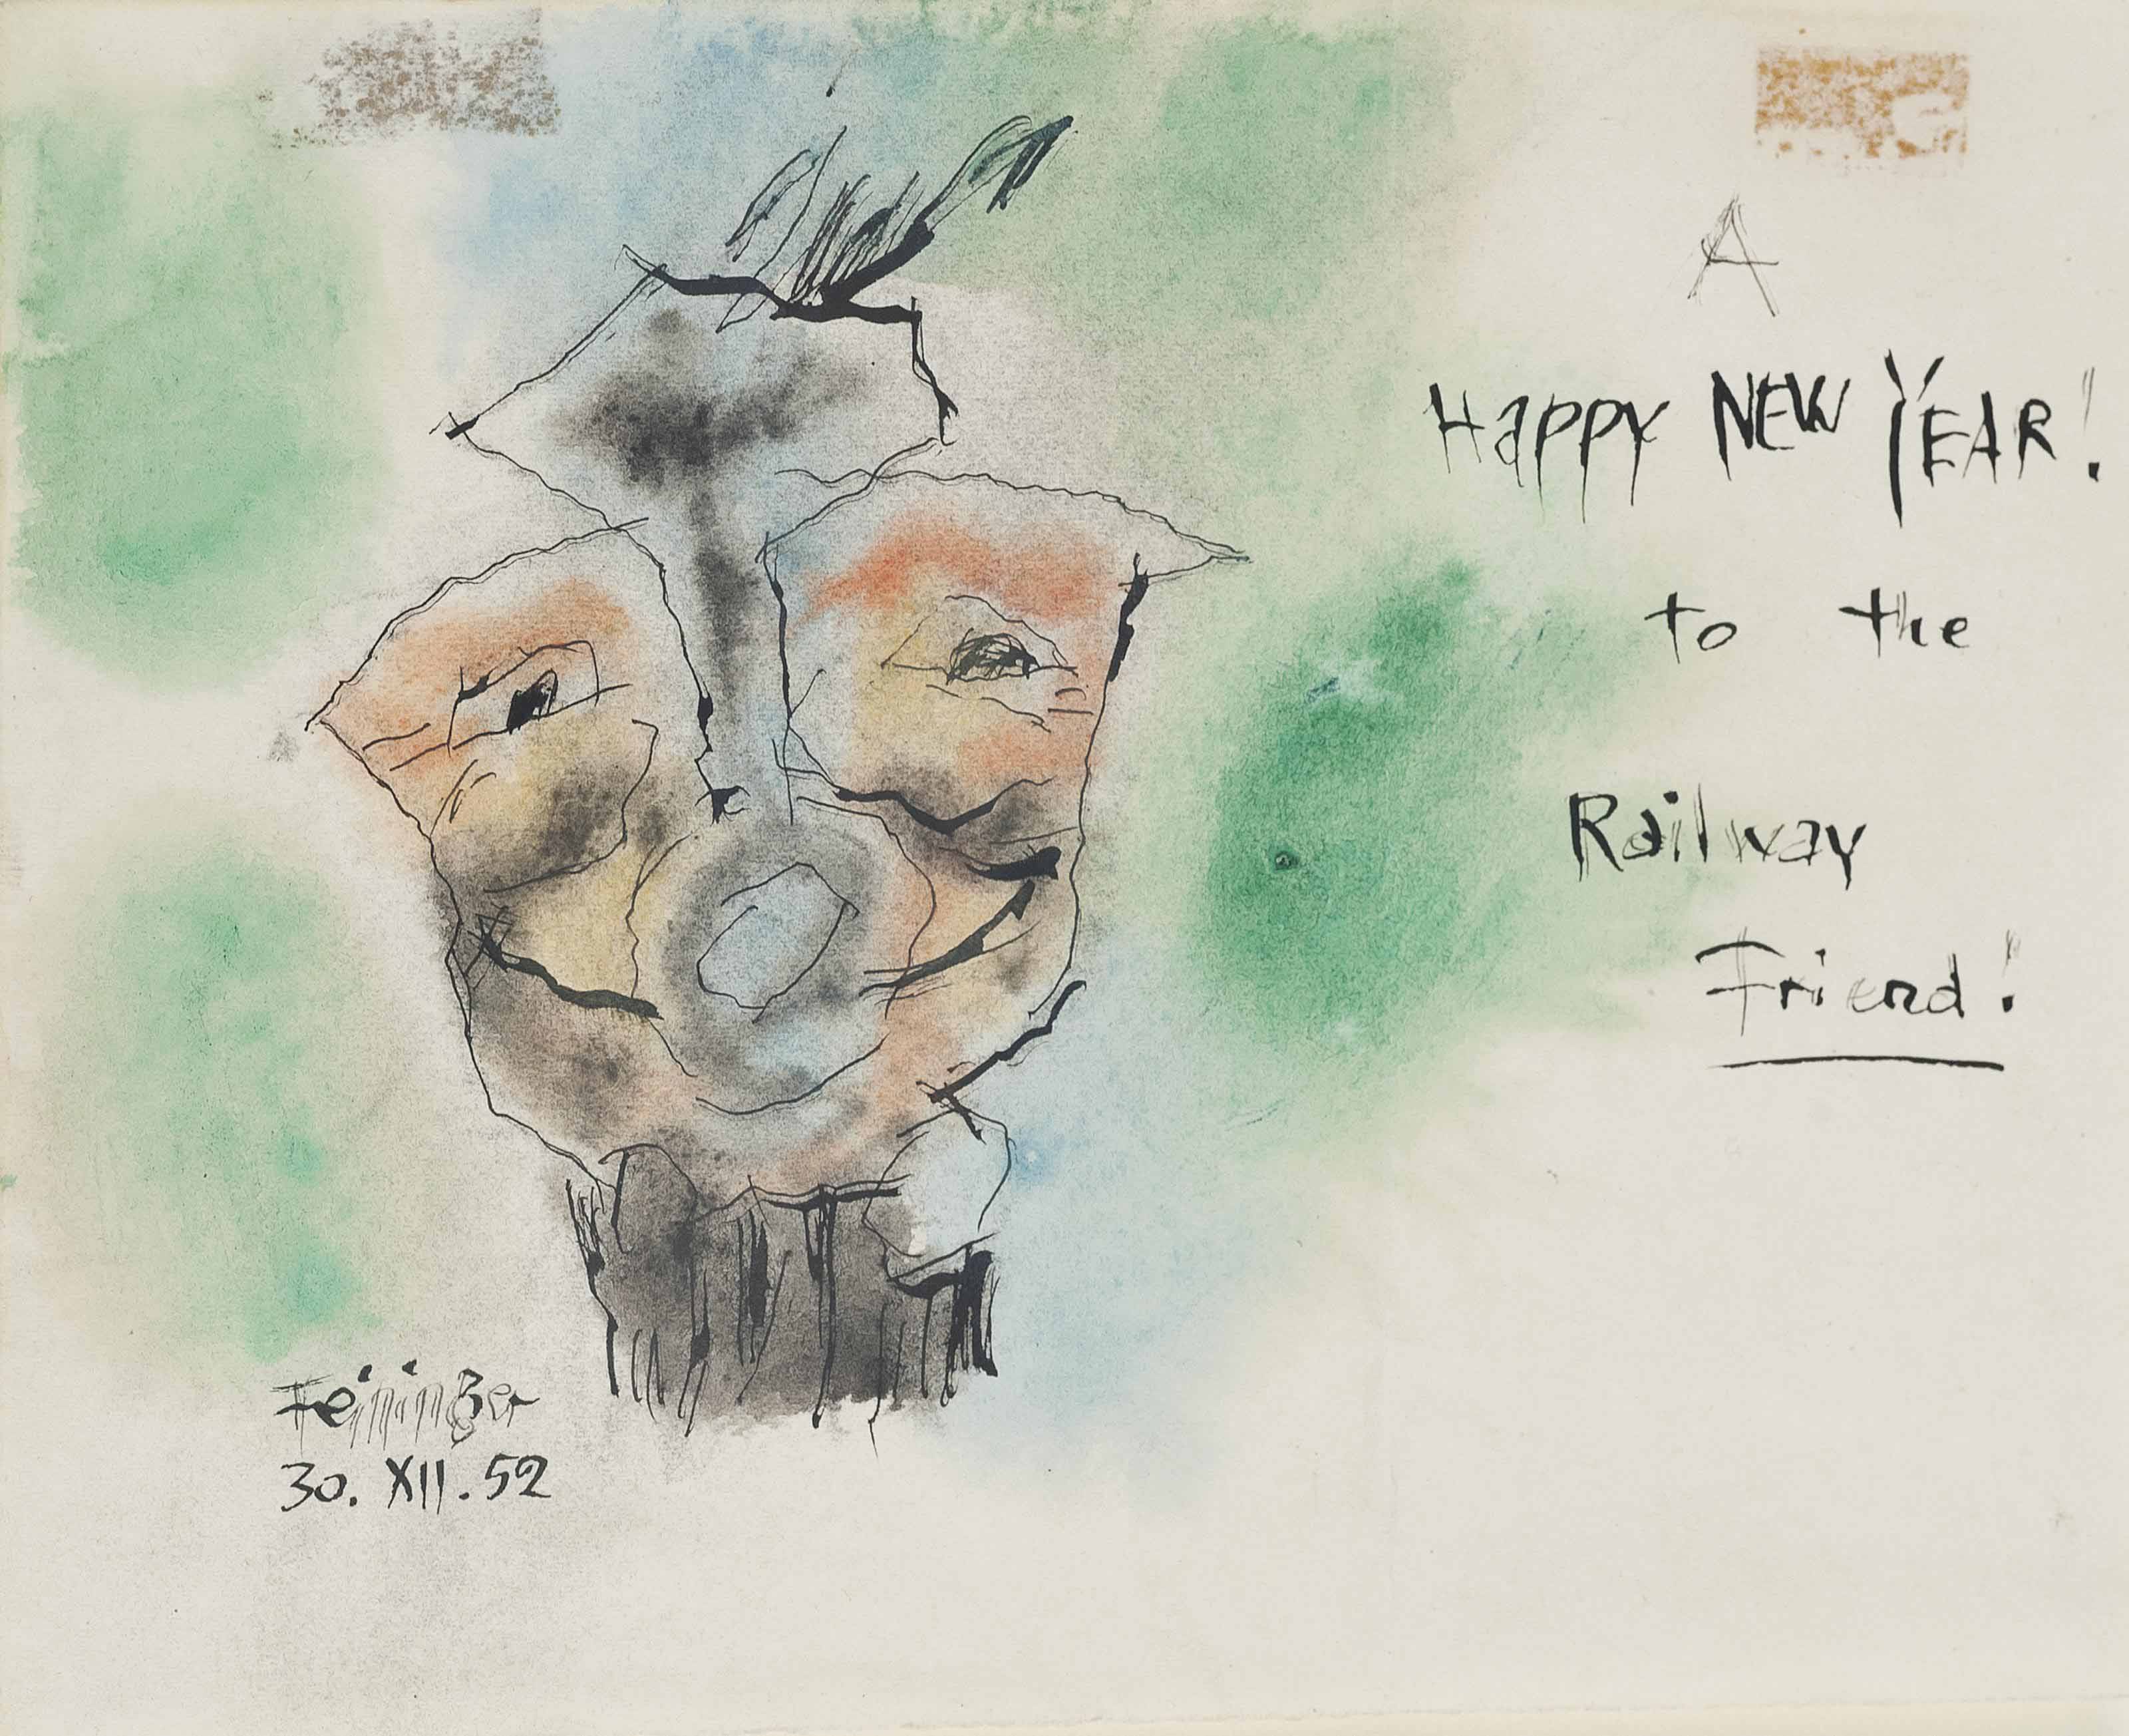 A
Happy NEW YEAR!
to the
Railway
Friend!
Feininger
30. XII. 52